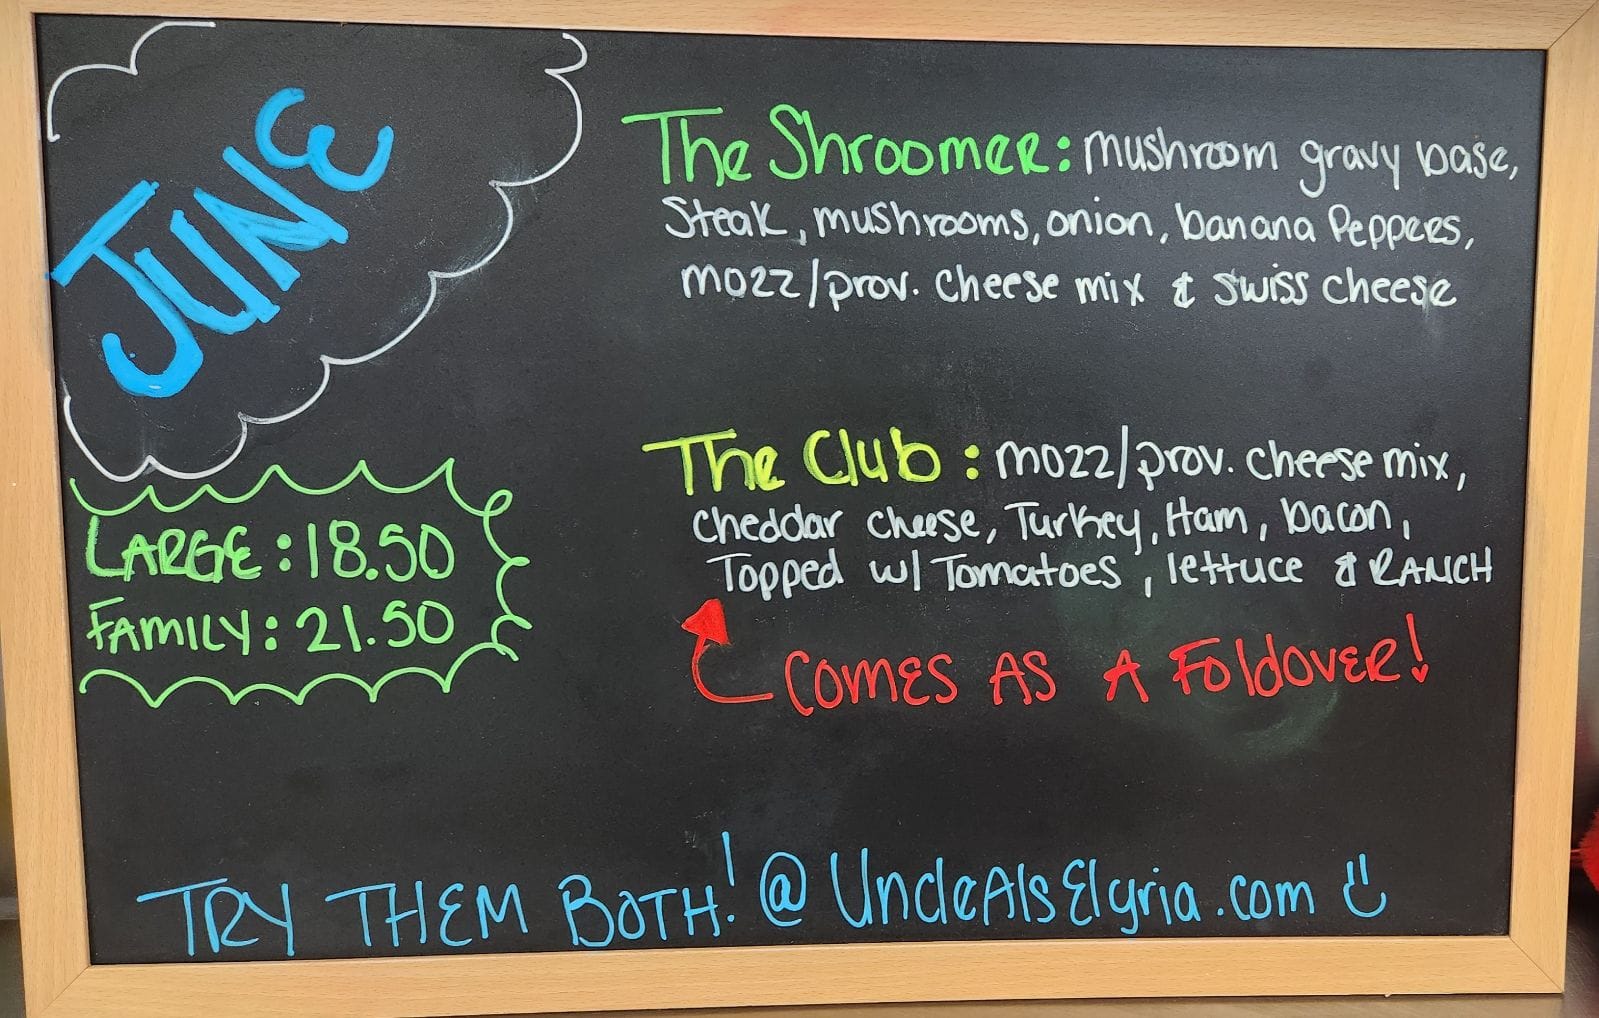 JUNE
The Shroomer: mushroom gravy base,
Steak, mushrooms, onion, banana Peppers,
mozz/prov. cheese mix & swiss cheese
The Club: mozz/prov. cheese mix,
cheddar cheese, Turkey, Ham, bacon,
Topped w/ Tomatoes, lettuce & RANCH
COMES AS A FoldovER!
LARGE: 18.50
FAMILY: 21.50
TRY THEM BOTH! @ UncleAlsElyria.com